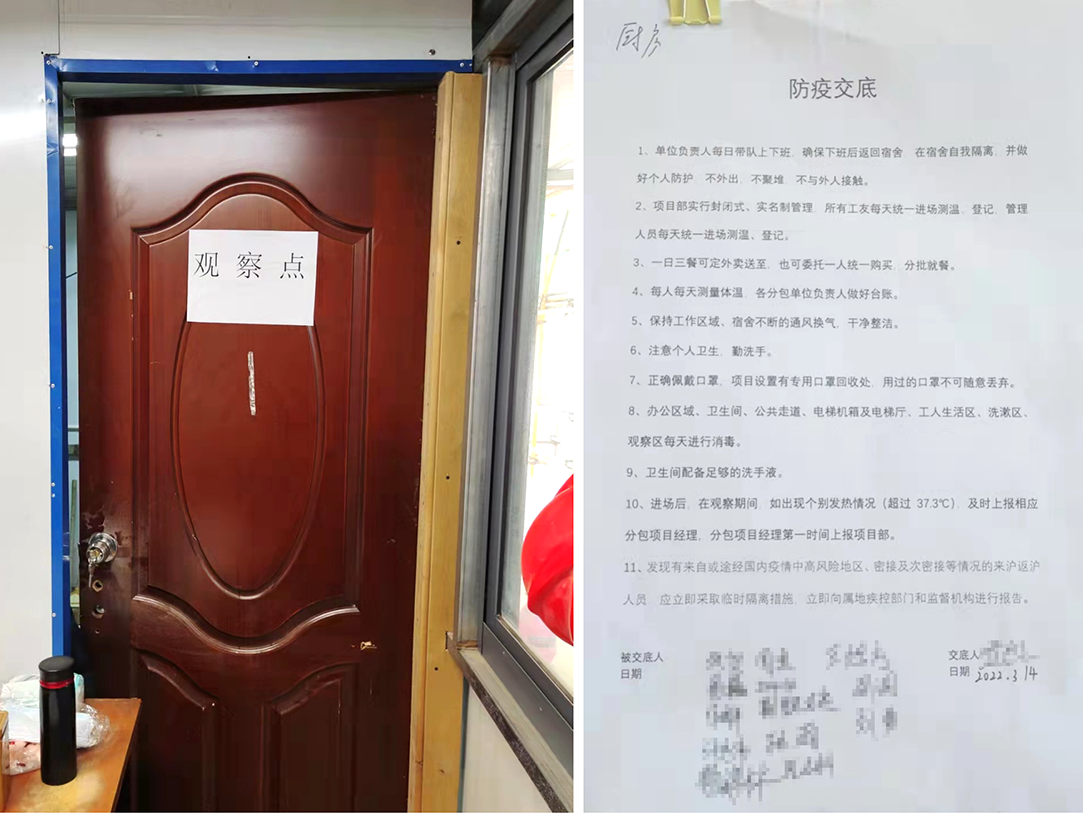 观察点
厨房
防疫交底
1、单位负责人每日带队上下班，确保下班后返回宿舍，在宿舍自我隔离，并做
好个人防护，不外出，不聚堆，不与外人接触。
2、项目部实行封闭式、实名制管理，所有工友每天统一进场测温，登记，管理
人员每天统一进场测温、登记。
3、一日三餐可定外卖送至，也可委托一人统一购买，分批就餐。
4、每人每天测量体温，各分包单位负责人做好台账。
5、保持工作区域、宿舍不断的通风换气，干净整洁。
6、注意个人卫生，勤洗手。
7、正确佩戴口罩，项目设置有专用口罩回收处，用过的口罩不可随意丢弃。
8、办公区域、卫生间、公共走道、电梯机箱及电梯厅、工人生活区、洗漱区、
观察区每天进行消毒。
9、卫生间配备足够的洗手液。
10、进场后，在观察期间，如出现个别发热情况（超过 37.3℃），及时上报相应
分包项目经理，分包项目经理第一时间上报项目部。
11、发现有来自或途经国内疫情中高风险地区、密接及次密接等情况的来沪返沪
人员，应立即采取临时隔离措施，立即向属地疾控部门和监督机构进行报告。
被交底人
日期
交底人
日期 2022.3.14